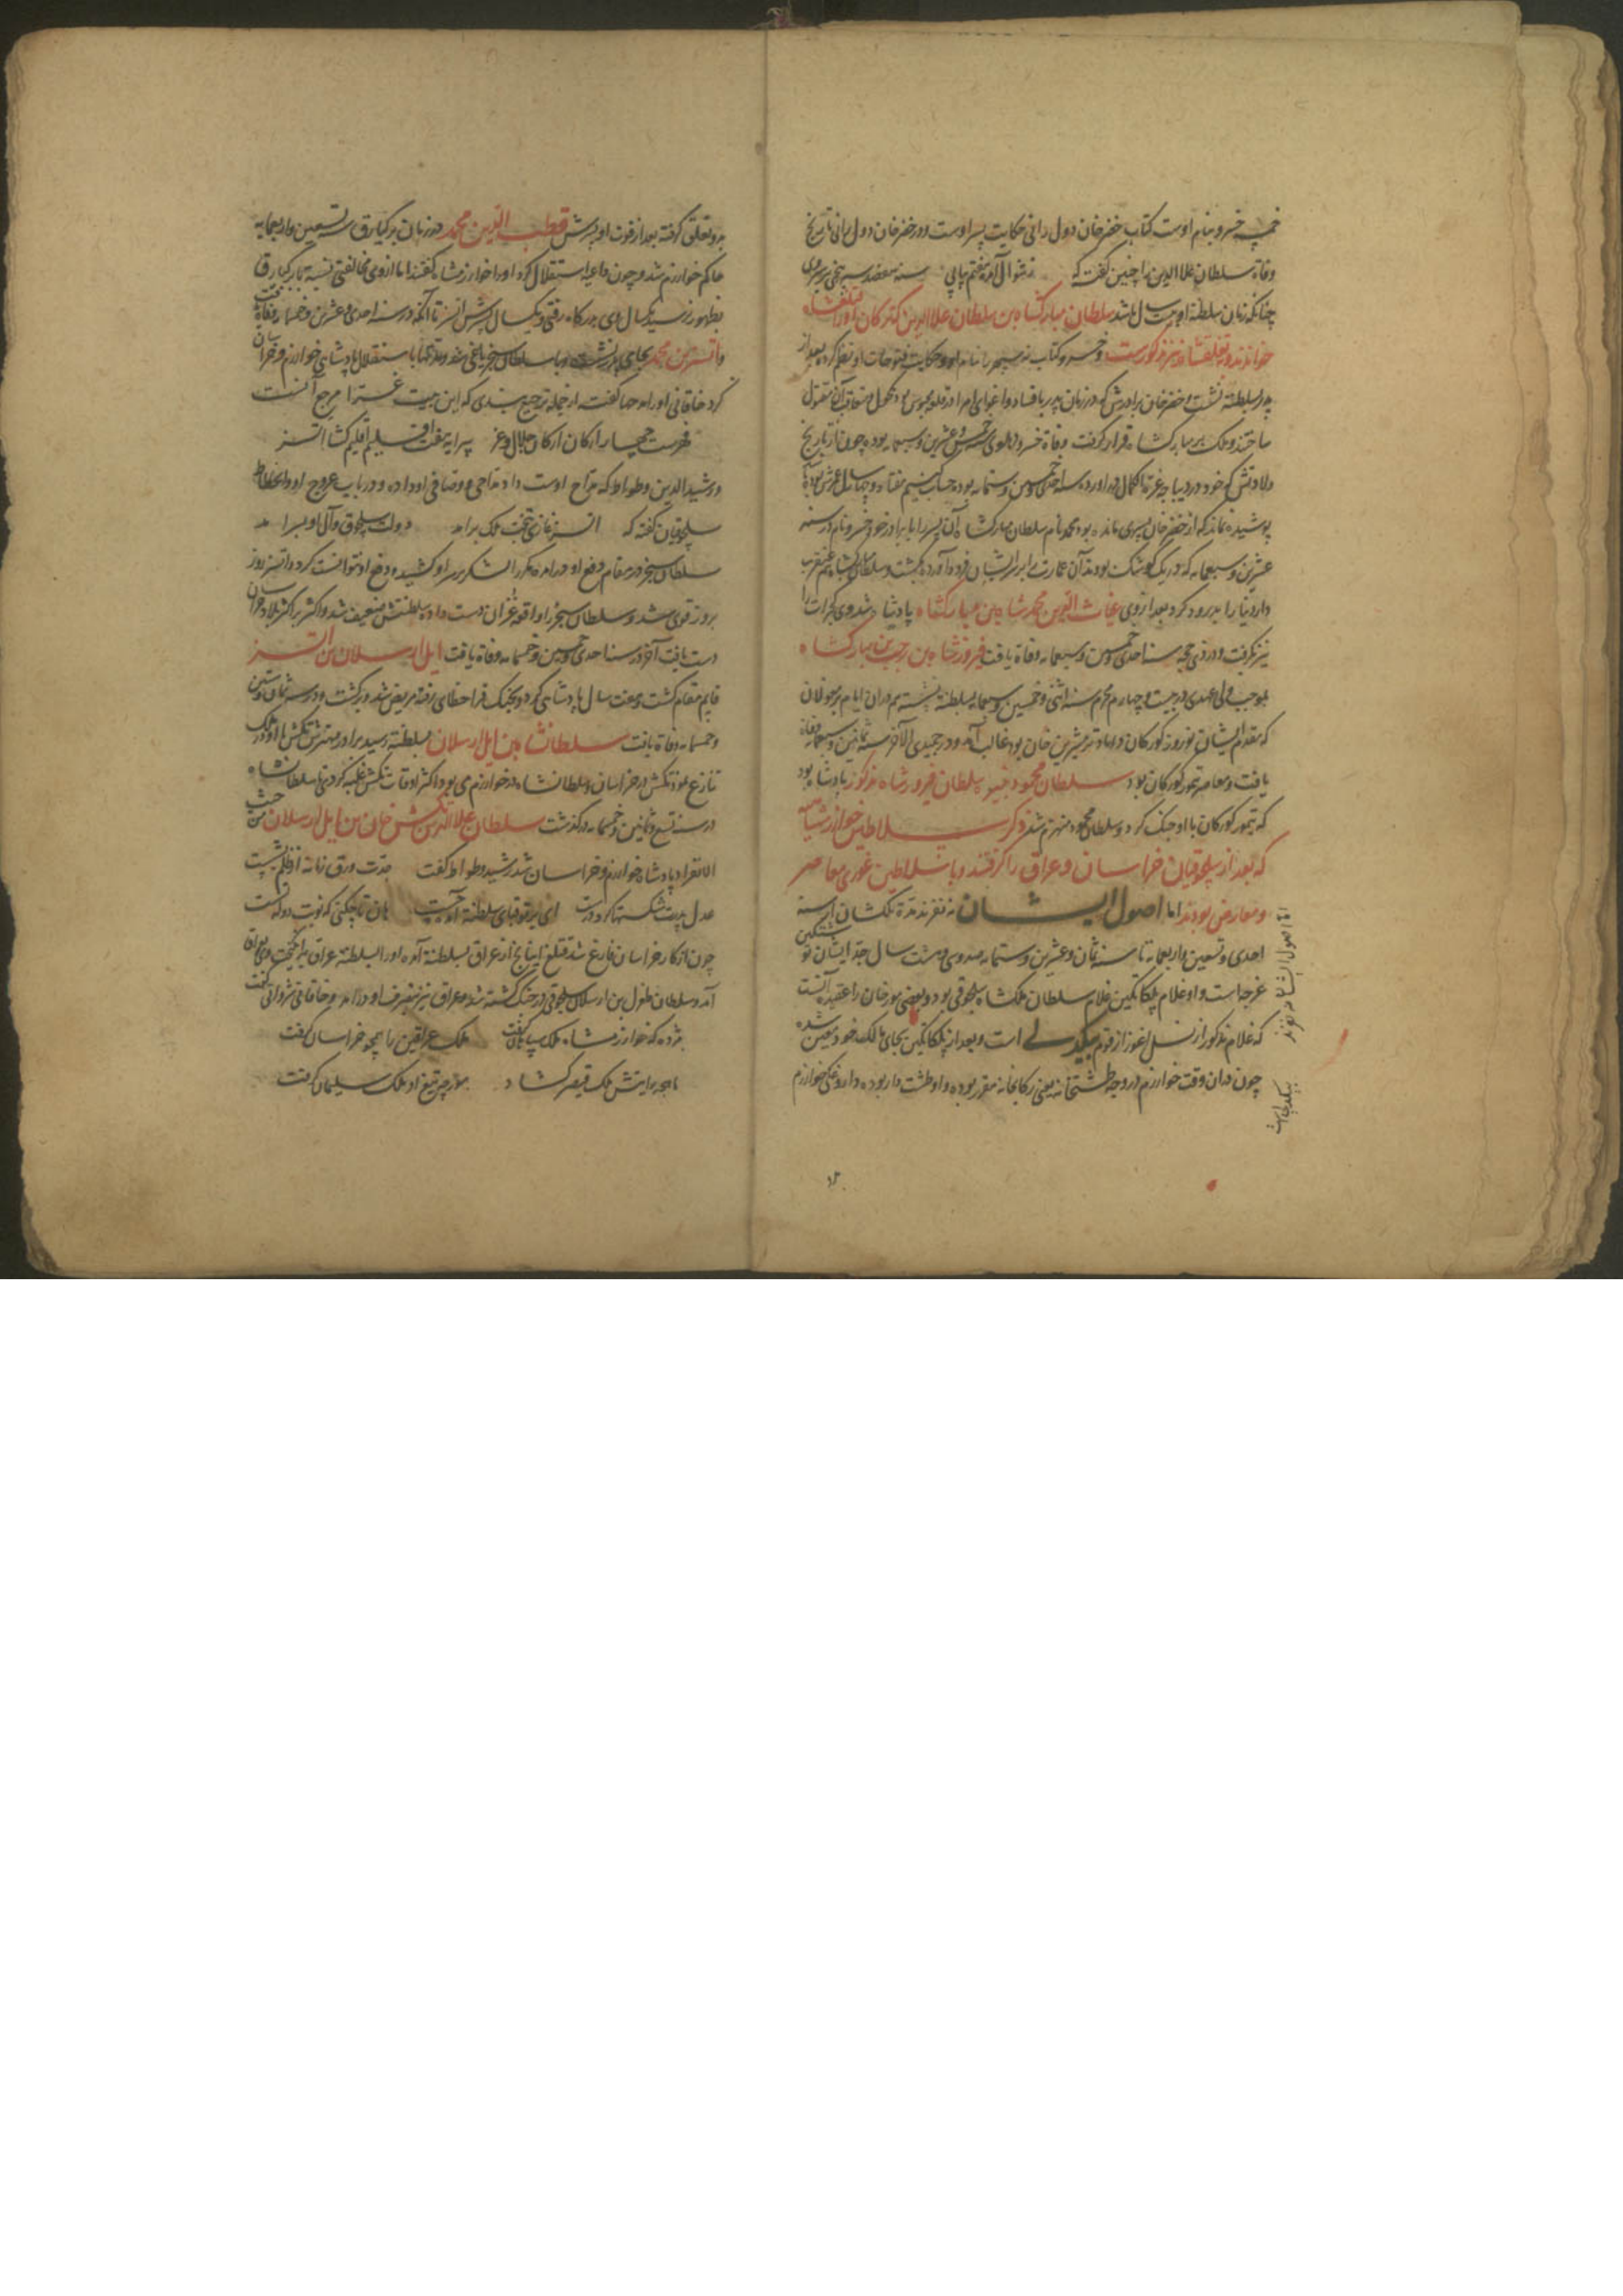 خمسه خسرو بنام اوست کتاب خضرخان دول رانی حکایت پسر اوست و در خضرخان دول رانی تاریخ
وفاة سلطان علاالدین را چنین گفته که ز شوال آمده هفتم پیاپی سنه هفصد و
چنانکه زمان سلطنة او بیست سال باشد سلطان مبارکشاه بن سلطان علاالدین که ترکان او را قتلغشاه
خوانند و قتلغشاه نیز مذکورست و خسرو کتاب نه سپهر را بنام او و حکایت فتوحات او نظم کرده بعد از
پدر بسلطنة نشست و خضرخان برادرش که در زمان پدر بافساد و اغوای امرا در قلعه محبوس بود مکحول و متعاقب آن مقتول
ساختند و ملک بر مبارکشاه قرار گرفت وفاة خسرو دهلوی خمس و عشرین و سبعمایه بوده چون از تاریخ
ولادتش که خود در دیباچه غرة الکمال آورده سنه احدی و خمسین و ستمایه بوده حساب کنیم هفتاد و چهار سال عمرش بوده
پوشیده نماند که از خضرخان پسری مانده بود محمد نام سلطان مبارکشاه آن پسر را با برادر خود خسرو نام در سنه
عشرین و سبعمایه که در یک کوشک بودند آن عمارت را بر سر ایشان فرود آورده بکشت و سلطان مبارکشاه هم عنقریب
دار دنیا را بدرود کرد بعد از وی غیاث الدین محمدشاه بن مبارکشاه پادشاه شد و وی کجرات را
نیز بگرفت و در ذی حجه سنه احدی و خمسین و سبعمایه وفاة یافت فیروزشاه بن رجب بن مبارکشاه
بموجب ولی عهدی در بیست و چهارم محرم سنه اثنی و خمسین و سبعمایه بسلطنة نشسته هم در آن ایام بر مغولان
که مقدم ایشان نوروز کورکان داماد ترمشیرین خان بود غالب آمد و در جمیدی الآخر سنه ثمانین و سبعمایه وفاة
یافت و معاصر تیمور کورکان بود سلطان محمود نبیره سلطان فیروزشاه مذکور پادشاه بود
که تیمور کورکان با او جنک کرد و سلطان محمود منهزم شد ذکر سلاطین خوارزمشاهیه
که بعد از سلجوقیان خراسان و عراق را گرفتند و با سلاطین غوری معاصر
و معارض بودند اما اصول ایشان نه نفرند مدة ملکشان از سنه
احدی و تسعین و اربعمایه تا سنه ثمان و عشرین و ستمایه صد و سی و هشت سال جد ایشان نوشتکین
غرجه است و او غلام بلکاتکین غلام سلطان ملکشاه سلجوقی بود و بعضی مورخان را عقیده آنست
که غلام مذکور از نسل اغوز از قوم بیکدلی است و بعد از بلکاتکین بجای مالک خود معین شده
چون در آن وقت خوارزم در وجه طشتخانه یعنی رکابخانه مقرر بوده و او طشت دار بوده داروغکی خوارزم
اما اصول ایشان نه نفرند
بیکدلی است
بدو تعلق گرفته بعد از فوت او پسرش قطب الدین محمد در زمان برکیارق سنه تسعین و اربعمایه
حاکم خوارزم شد و چون داعیه استقلال کرد او را خوارزمشاه گفتند اما از وی مخالفتی نسبة با برکیارق
بظهور نرسید یکسال وی بدرکاه رفتی و یکسال پسرش اتسز تا آنکه در سنه احدی و عشرین و خمسمایه وفاة یافت
و اتسز بن محمد بجای پدر نشست و با سلطان سنجر یاغی شد و مدتها باستقلال پادشاهی خوارزم و خراسان
کرد خاقانی او را مدحها گفته از جمله ترجیع بندی که این بیت غرا مرجع آنست
فهرست چهار ارکان ارکان جلال و عز پیرایه هفت اقلیم اقلیم کشا اتسز
و رشیدالدین وطواط که مداح اوست داد مداحی و وصافی او داده و در باب عروج او و انحطاط
سلجوقیان گفته که اتسز غازی بتخت ملک برامد دولت سلجوق و آل او بسرامد
سلطان سنجر در مقام دفع او درآمده مکررا لشکر بر سر او کشیده و دفع او نتوانست کرد و اتسز روز
بروز قوی شد و سلطان سنجر را واقعه غزان دست داده سلطنتش ضعیف شد و اتسز بر اکثر بلاد خراسان
دست یافت آخر در سنه احدی و خمسین و خمسمایه وفاة یافت ایل ارسلان بن اتسز
قایم مقام گشت و هفت سال پادشاهی کرد و بجنک قراخطای رفته مریض شد و برگشت و در سنه ثمان و ستین
و خمسمایه وفاة یافت سلطانشاه بن ایل ارسلان بسلطنة رسید برادر مهترش تکش با او در ملک
تنازع نمود تکش در خراسان و سلطانشاه در خوارزم می بود و اکثر اوقات تکش غلبه کردی تا سلطانشاه
در سنه تسع و ثمانین و خمسمایه درگذشت سلطان علاالدین تکش خان بن ایل ارسلان من حیث
الانفراد پادشاه خوارزم و خراسان شد رشید وطواط گفت جدت ورق زمانه از ظلم بشست
عدل پدرت شکستها کرد درست ای بر تو قبای سلطنة آمده چست هان تا چکنی که نوبت دولت تست
چون از کار خراسان فارغ شد قتلغ اینانج از عراق بسلطنة آمده او را بسلطنة عراق برانکیخت وی بعراق
آمد و سلطان طغرل بن ارسلان سلجوقی در جنک کشته شد و عراق نیز بتصرف او درآمد و خاقانی شروانی گفت
مژده که خوارزمشاه ملک سپاهان گرفت ملک عراقین را همچو خراسان گرفت
ماهچه رایتش ملک قیصر کشاد مورچه تیغ او ملک سلیمان گرفت